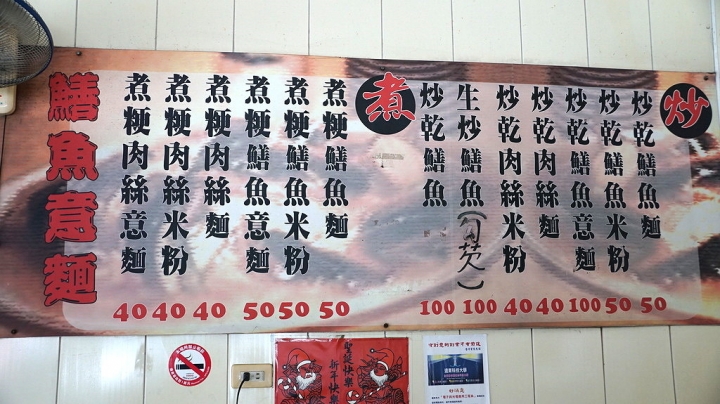 炒
炒乾鱔魚麵 50
炒乾鱔魚米粉 50
炒乾鱔魚意麵 100
炒乾肉絲麵 40
炒乾肉絲米粉 40
生炒鱔魚(勾芡) 100
炒乾鱔魚 100
煮
煮粳鱔魚麵 50
煮粳鱔魚米粉 50
煮粳鱔魚意麵 50
煮粳肉絲麵 40
煮粳肉絲米粉 40
煮粳肉絲意麵 40
鱔魚意麵
聖誕快樂
新年快樂